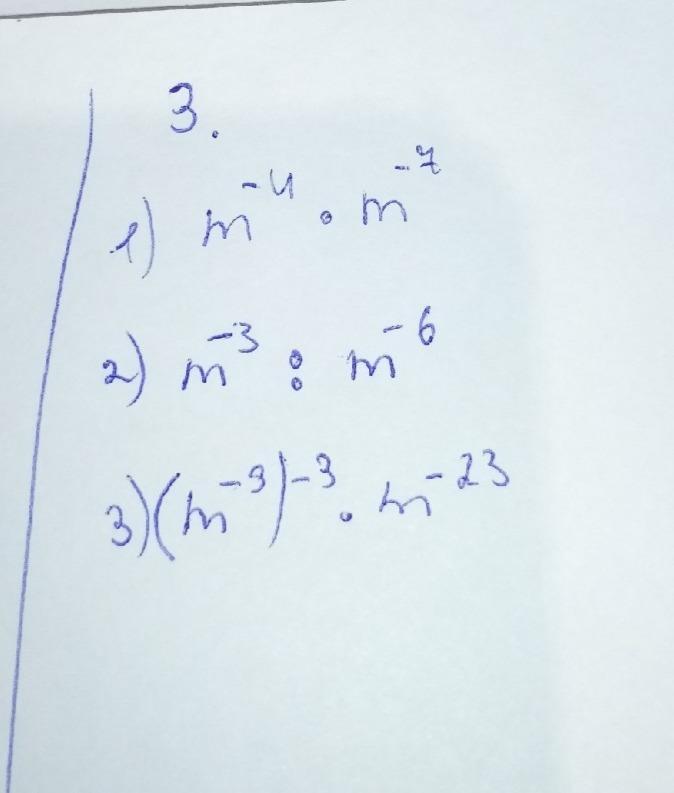 3.
1) m⁻⁴ · m⁻⁷
2) m⁻³ : m⁻⁶
3) (m⁻³)⁻³ · m⁻²³